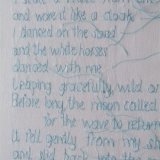 and wore it like a cloak
I danced on the sand
and the white horses
danced with me
Leaping gracefully wild a
Before long the moon called
for the wave to return
It fell gently from my sh
and slid back into the